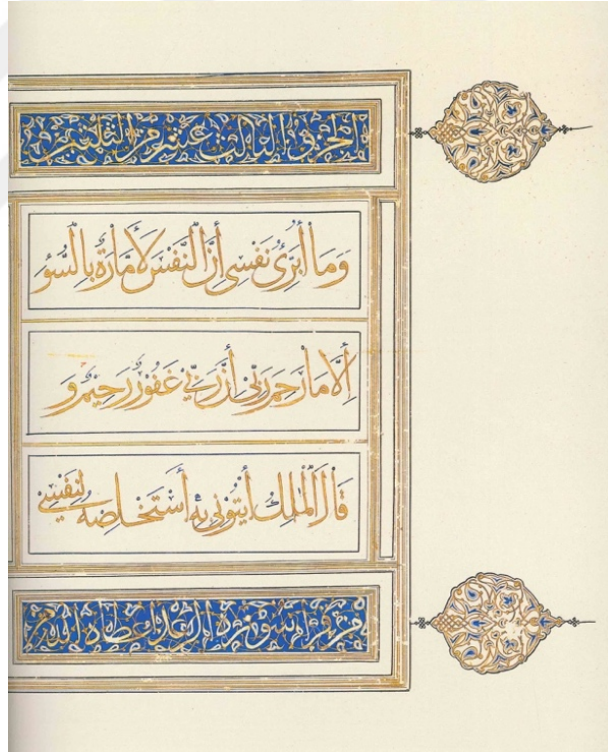 الجزء الثالث عشر من الثلثين
وَمَا أُبَرِّئُ نَفْسِي إِنَّ النَّفْسَ لَأَمَّارَةٌ بِالسُّوءِ
إِلَّا مَا رَحِمَ رَبِّي إِنَّ رَبِّي غَفُورٌ رَحِيمٌ وَ
قَالَ الْمَلِكُ ائْتُونِي بِهِ أَسْتَخْلِصْهُ لِنَفْسِي
من قرأ سورة الرعد اعطاه الله